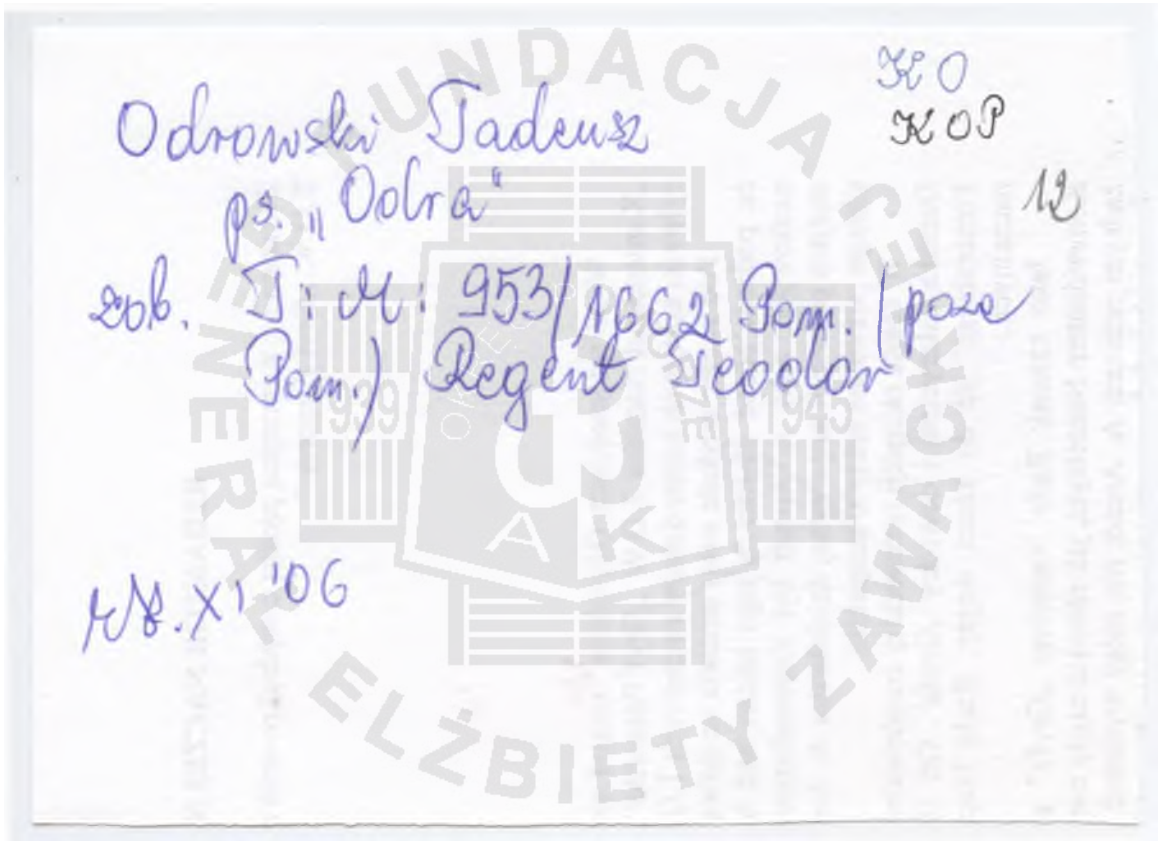 KO
KOP
12
Odrowski Tadeusz
ps. „Odra"
zob. T: M: 953/1662 Pom. (poza
Pom.) Regent Teodor
XI '06
FUNDACJA GENERAŁ ELŻBIETY ZAWACKIEJ
1939
1945
AK